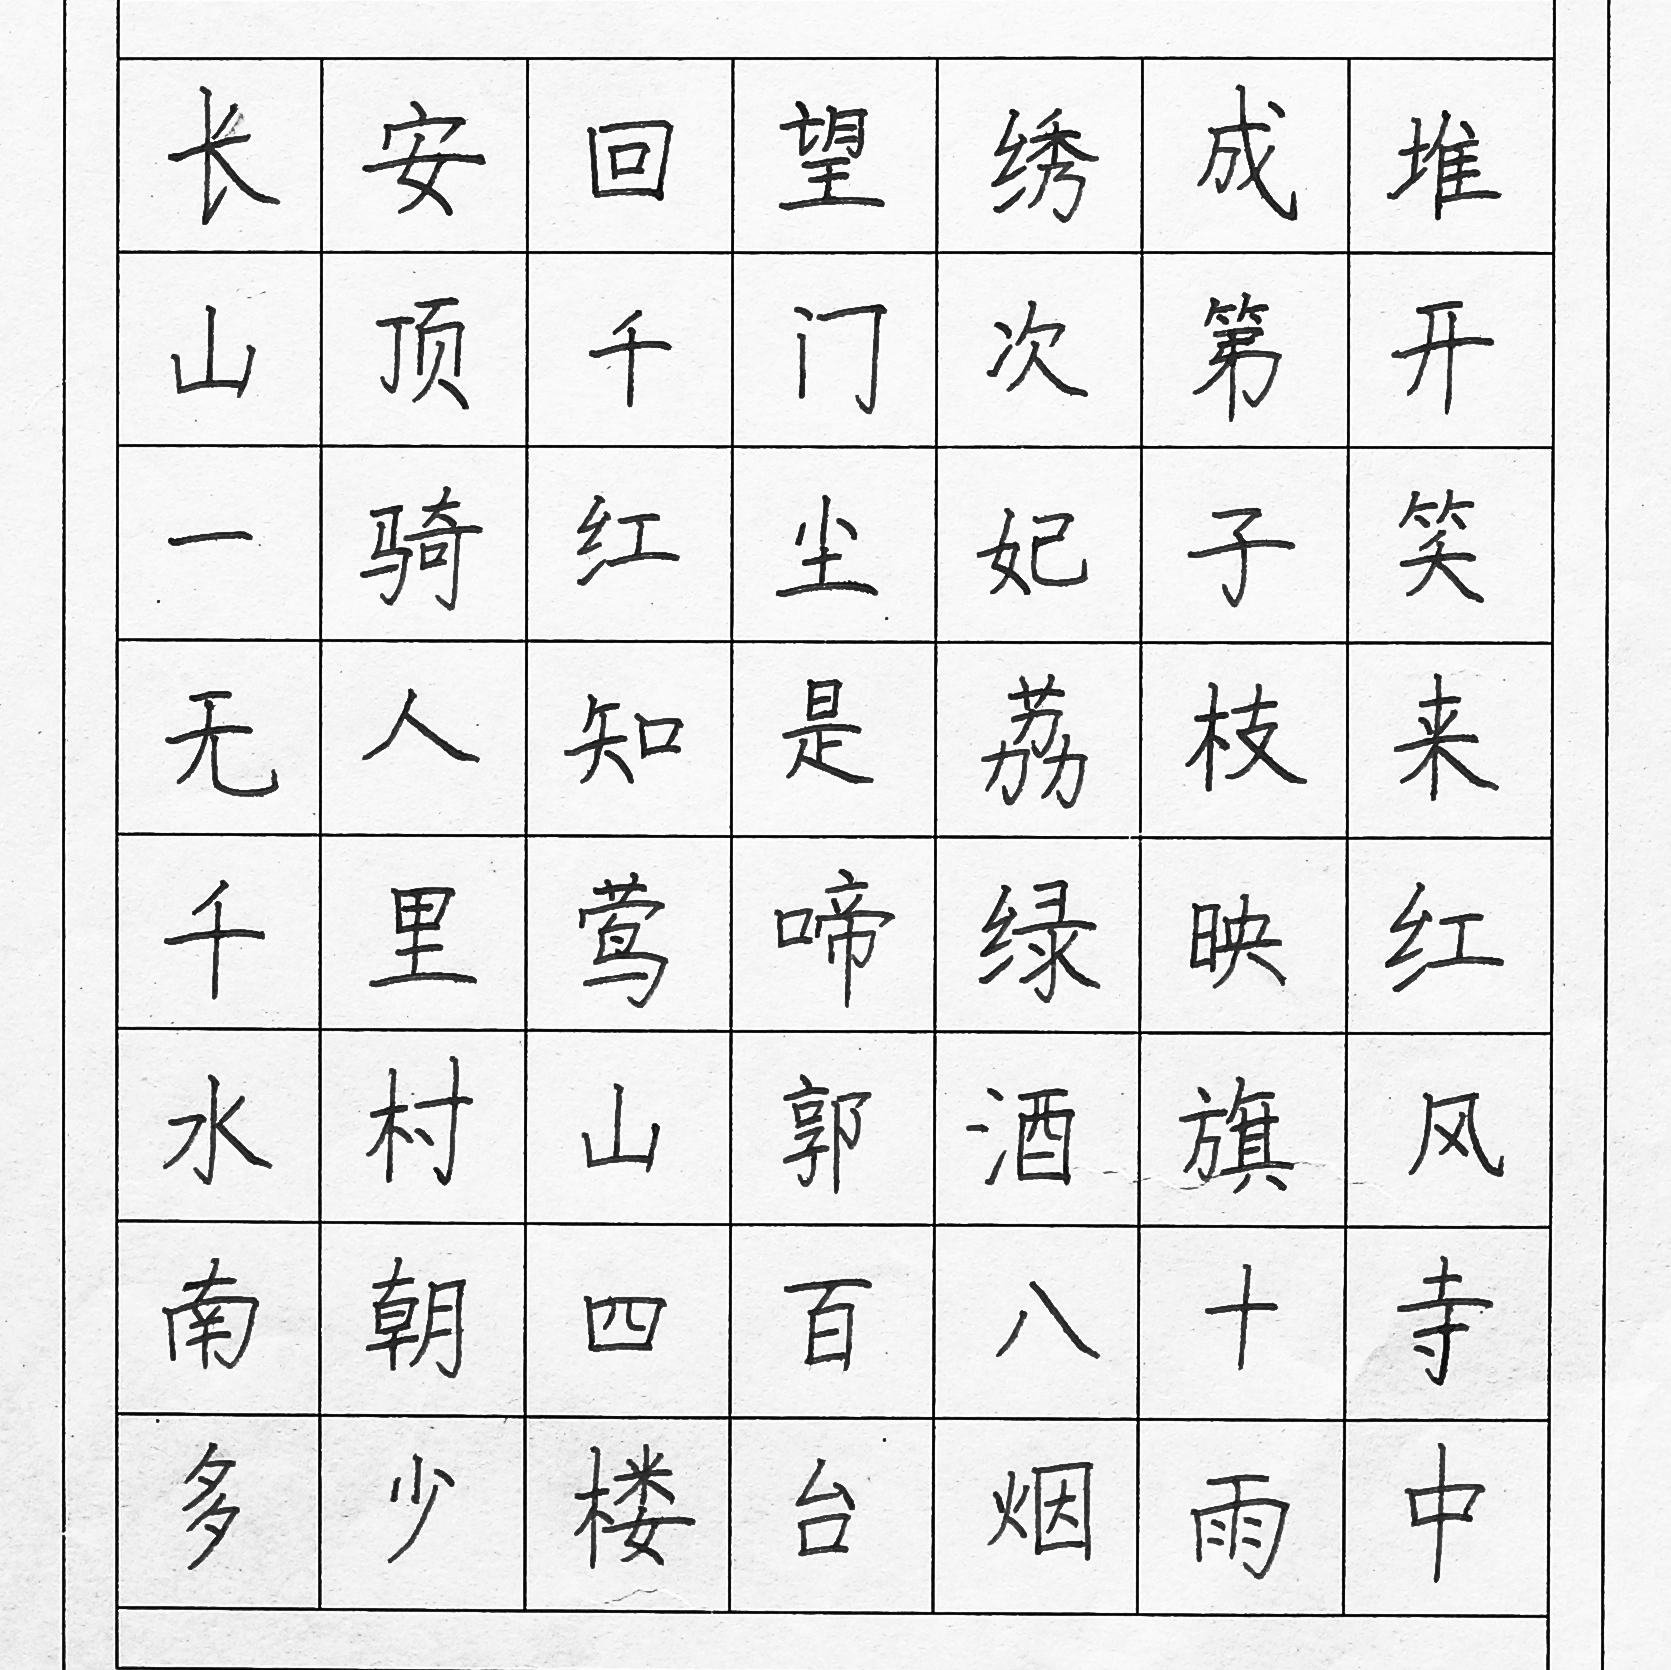 长安回望绣成堆
山顶千门次第开
一骑红尘妃子笑
无人知是荔枝来
千里莺啼绿映红
水村山郭酒旗风
南朝四百八十寺
多少楼台烟雨中